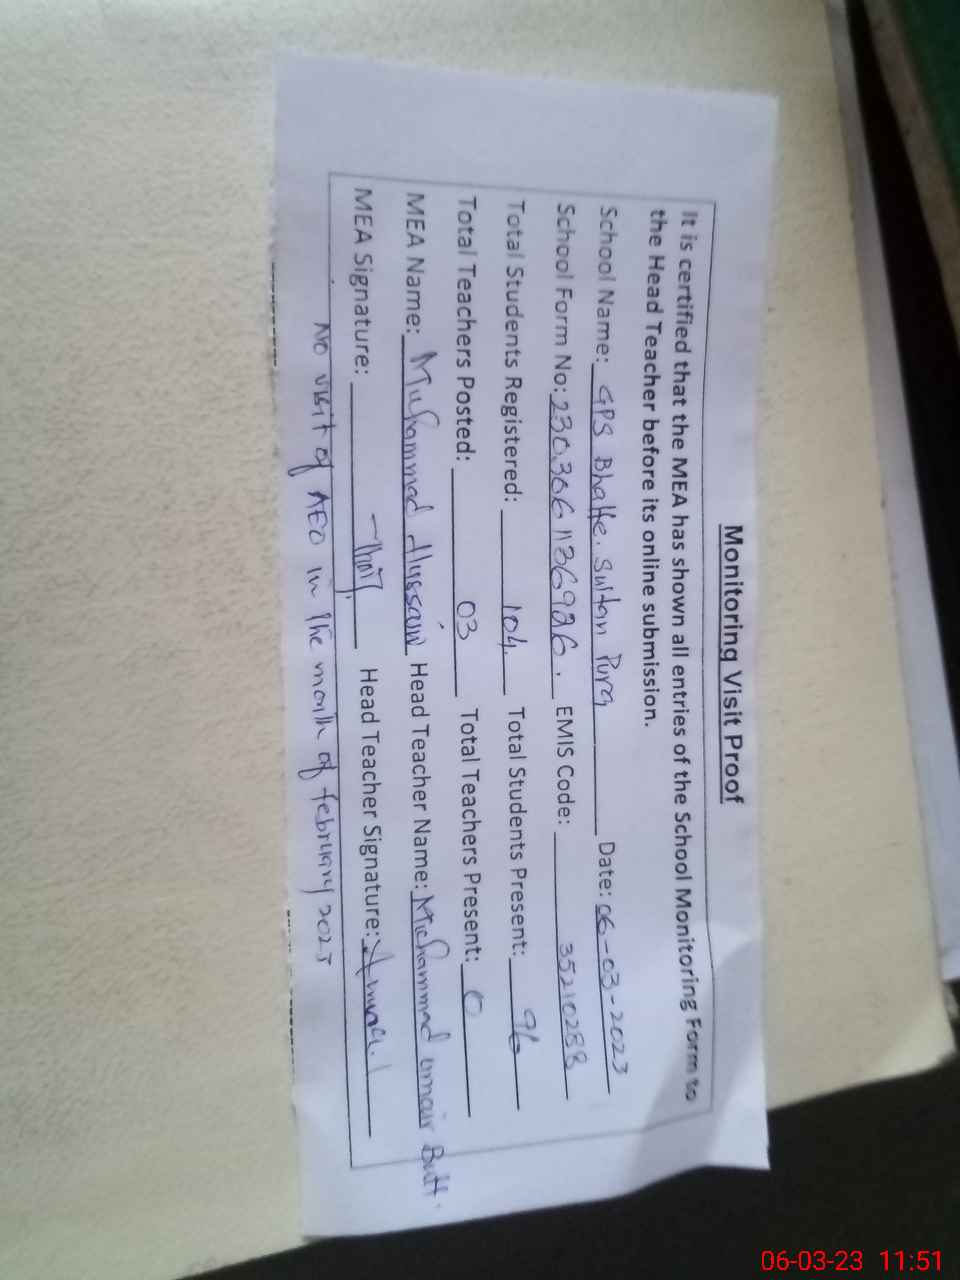 Monitoring Visit Proof
It is certified that the MEA has shown all entries of the School Monitoring Form to
the Head Teacher before its online submission.
School Name: GPS Bhatte. Sultan Pura Date: 06-03-2023
School Form No: EMIS Code: 35210288
Total Students Registered: 104 Total Students Present: 96
Total Teachers Posted: 03 Total Teachers Present: 0
MEA Name: Muhammad Hussain Head Teacher Name: Muhammad umair Butt.
MEA Signature: Head Teacher Signature:
No visit of AEO in the month of february 2023
06-03-23 11:51